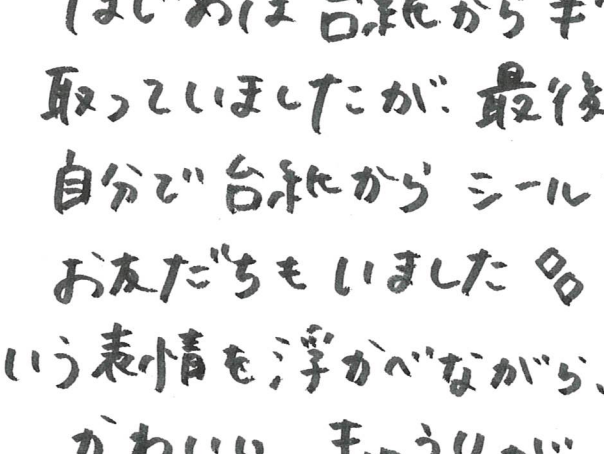 はじめは 台紙から
取っていましたが、最後
自分で 台紙から シール
お友だちも いました
いう表情を浮かべながら、
かわいい きゅうりが